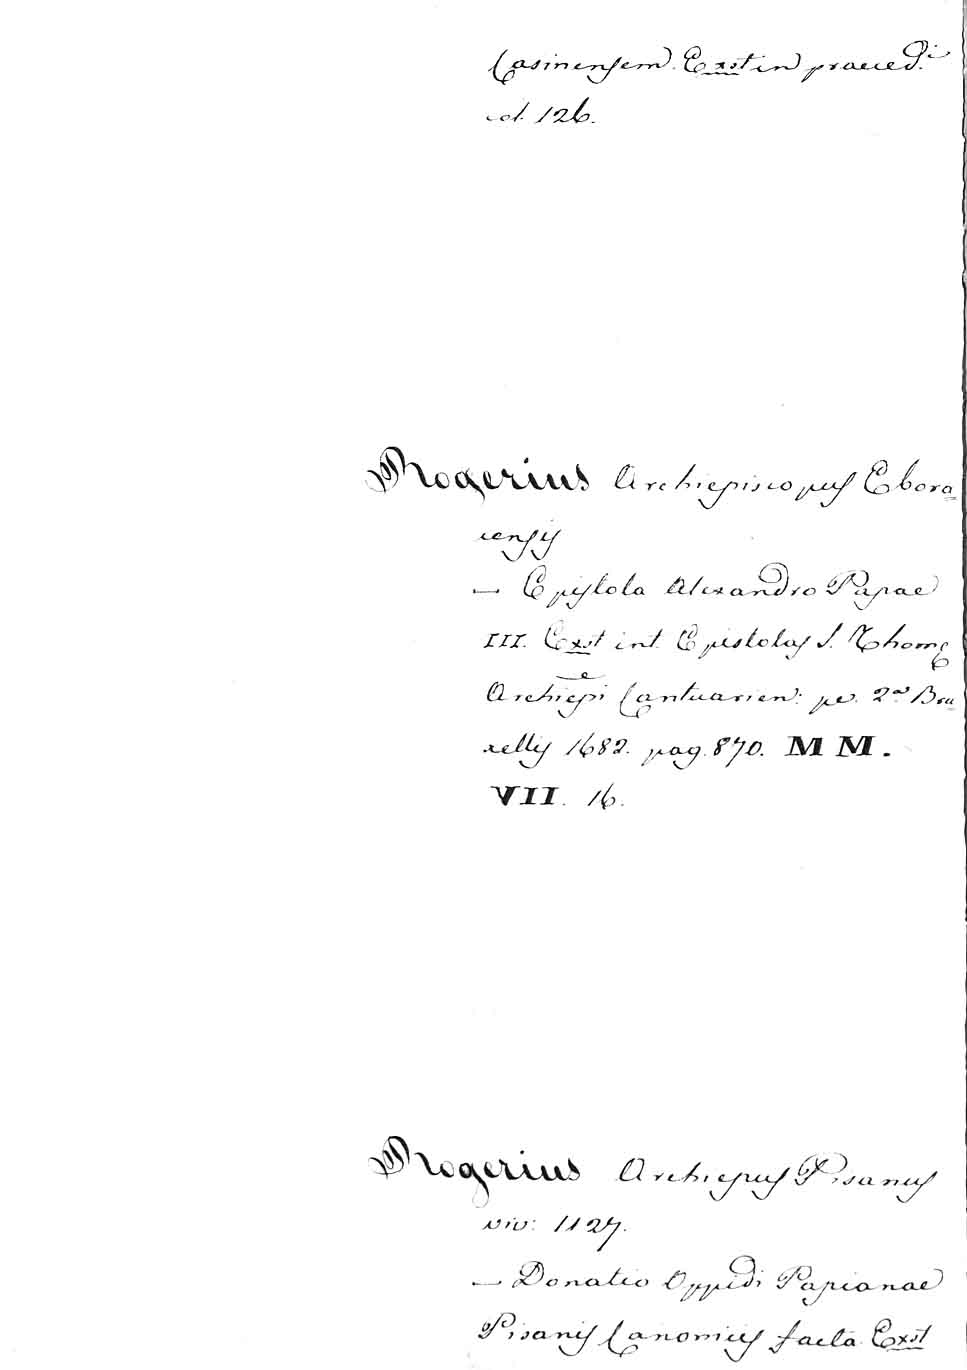 Casinensem. Exst in praeced.i
col. 126.
Rogerius Archiepiscopus Ebora-
censis
— Epistola Alexandro Papae
III. Exst int. Epistolas S. Thomę
Archiepi Cantuarien: pe. 2a Bru-
xellis 1682. pag. 870. MM.
VII. 16.
Rogerius Archiepus Pisanus
viv: 1127.
— Donatio Oppidi Papianae
Pisanis Canonicis facta. Exst